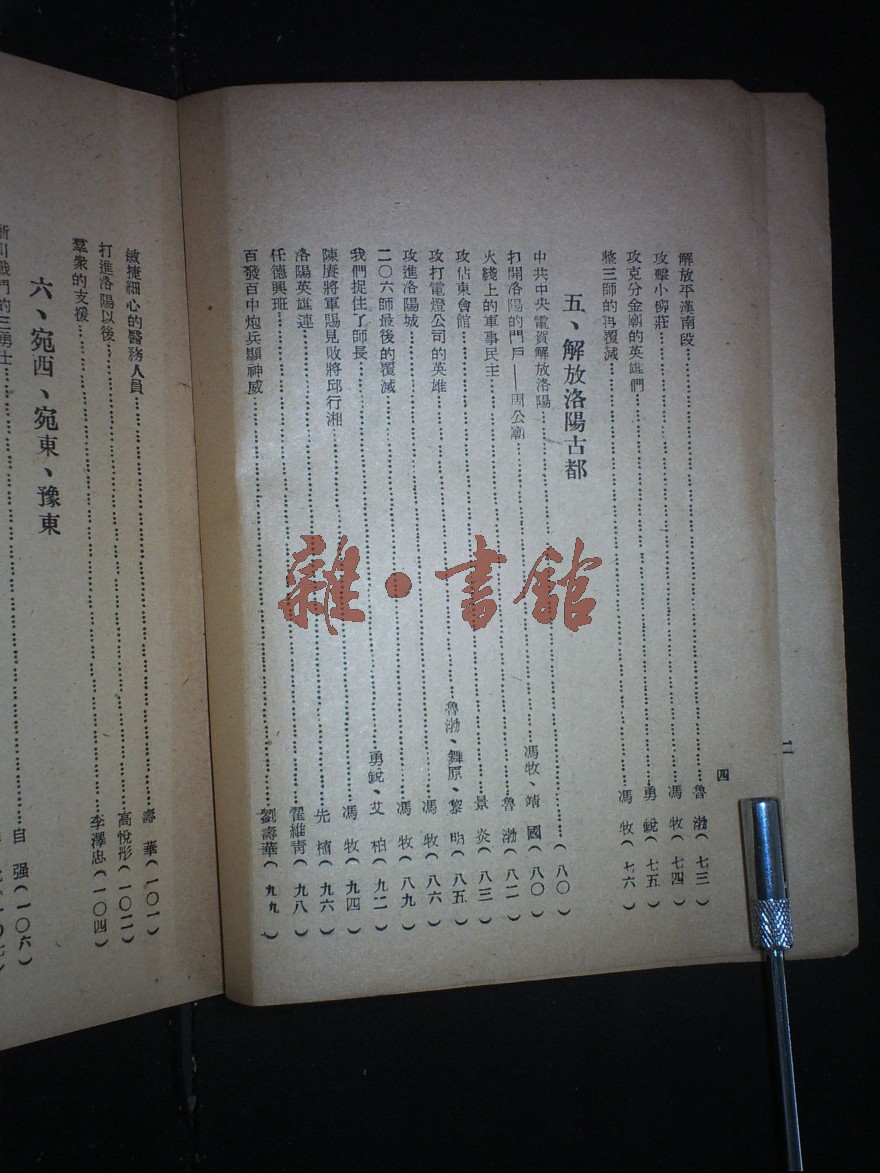 四
解放平漢南段……魯　渤(七三)
攻擊小鄒莊……馮　牧(七四)
攻克分金廟的英雄們……勇　銳(七五)
整三師的再覆滅……馮　牧(七六)
五、解放洛陽古都
中共中央電賀解放洛陽……(八〇)
打開洛陽的門戶——周公廟……馮牧、靖國(八〇)
火綫上的軍事民主……魯　渤(八二)
攻佔東會館……景　炎(八三)
攻打電燈公司的英雄……魯渤、舞原、黎明(八五)
攻進洛陽城……馮　牧(八六)
二〇六師最後的覆滅……馮　牧(八九)
我們捉住了師長……勇銳、艾柏(九二)
陳賡將軍賜見敗將邱行湘……馮　牧(九四)
洛陽英雄連……先　植(九六)
任德興班……翟維青(九八)
百發百中炮兵顯神威……劉壽華(九九)
敏捷細心的醫務人員……壽　華(一〇一)
打進洛陽以後……高悅彤(一〇二)
羣衆的支援……李澤忠(一〇四)
六、宛西、宛東、豫東
淅川戰鬥的三勇士……自　强(一〇六)
雜·書館